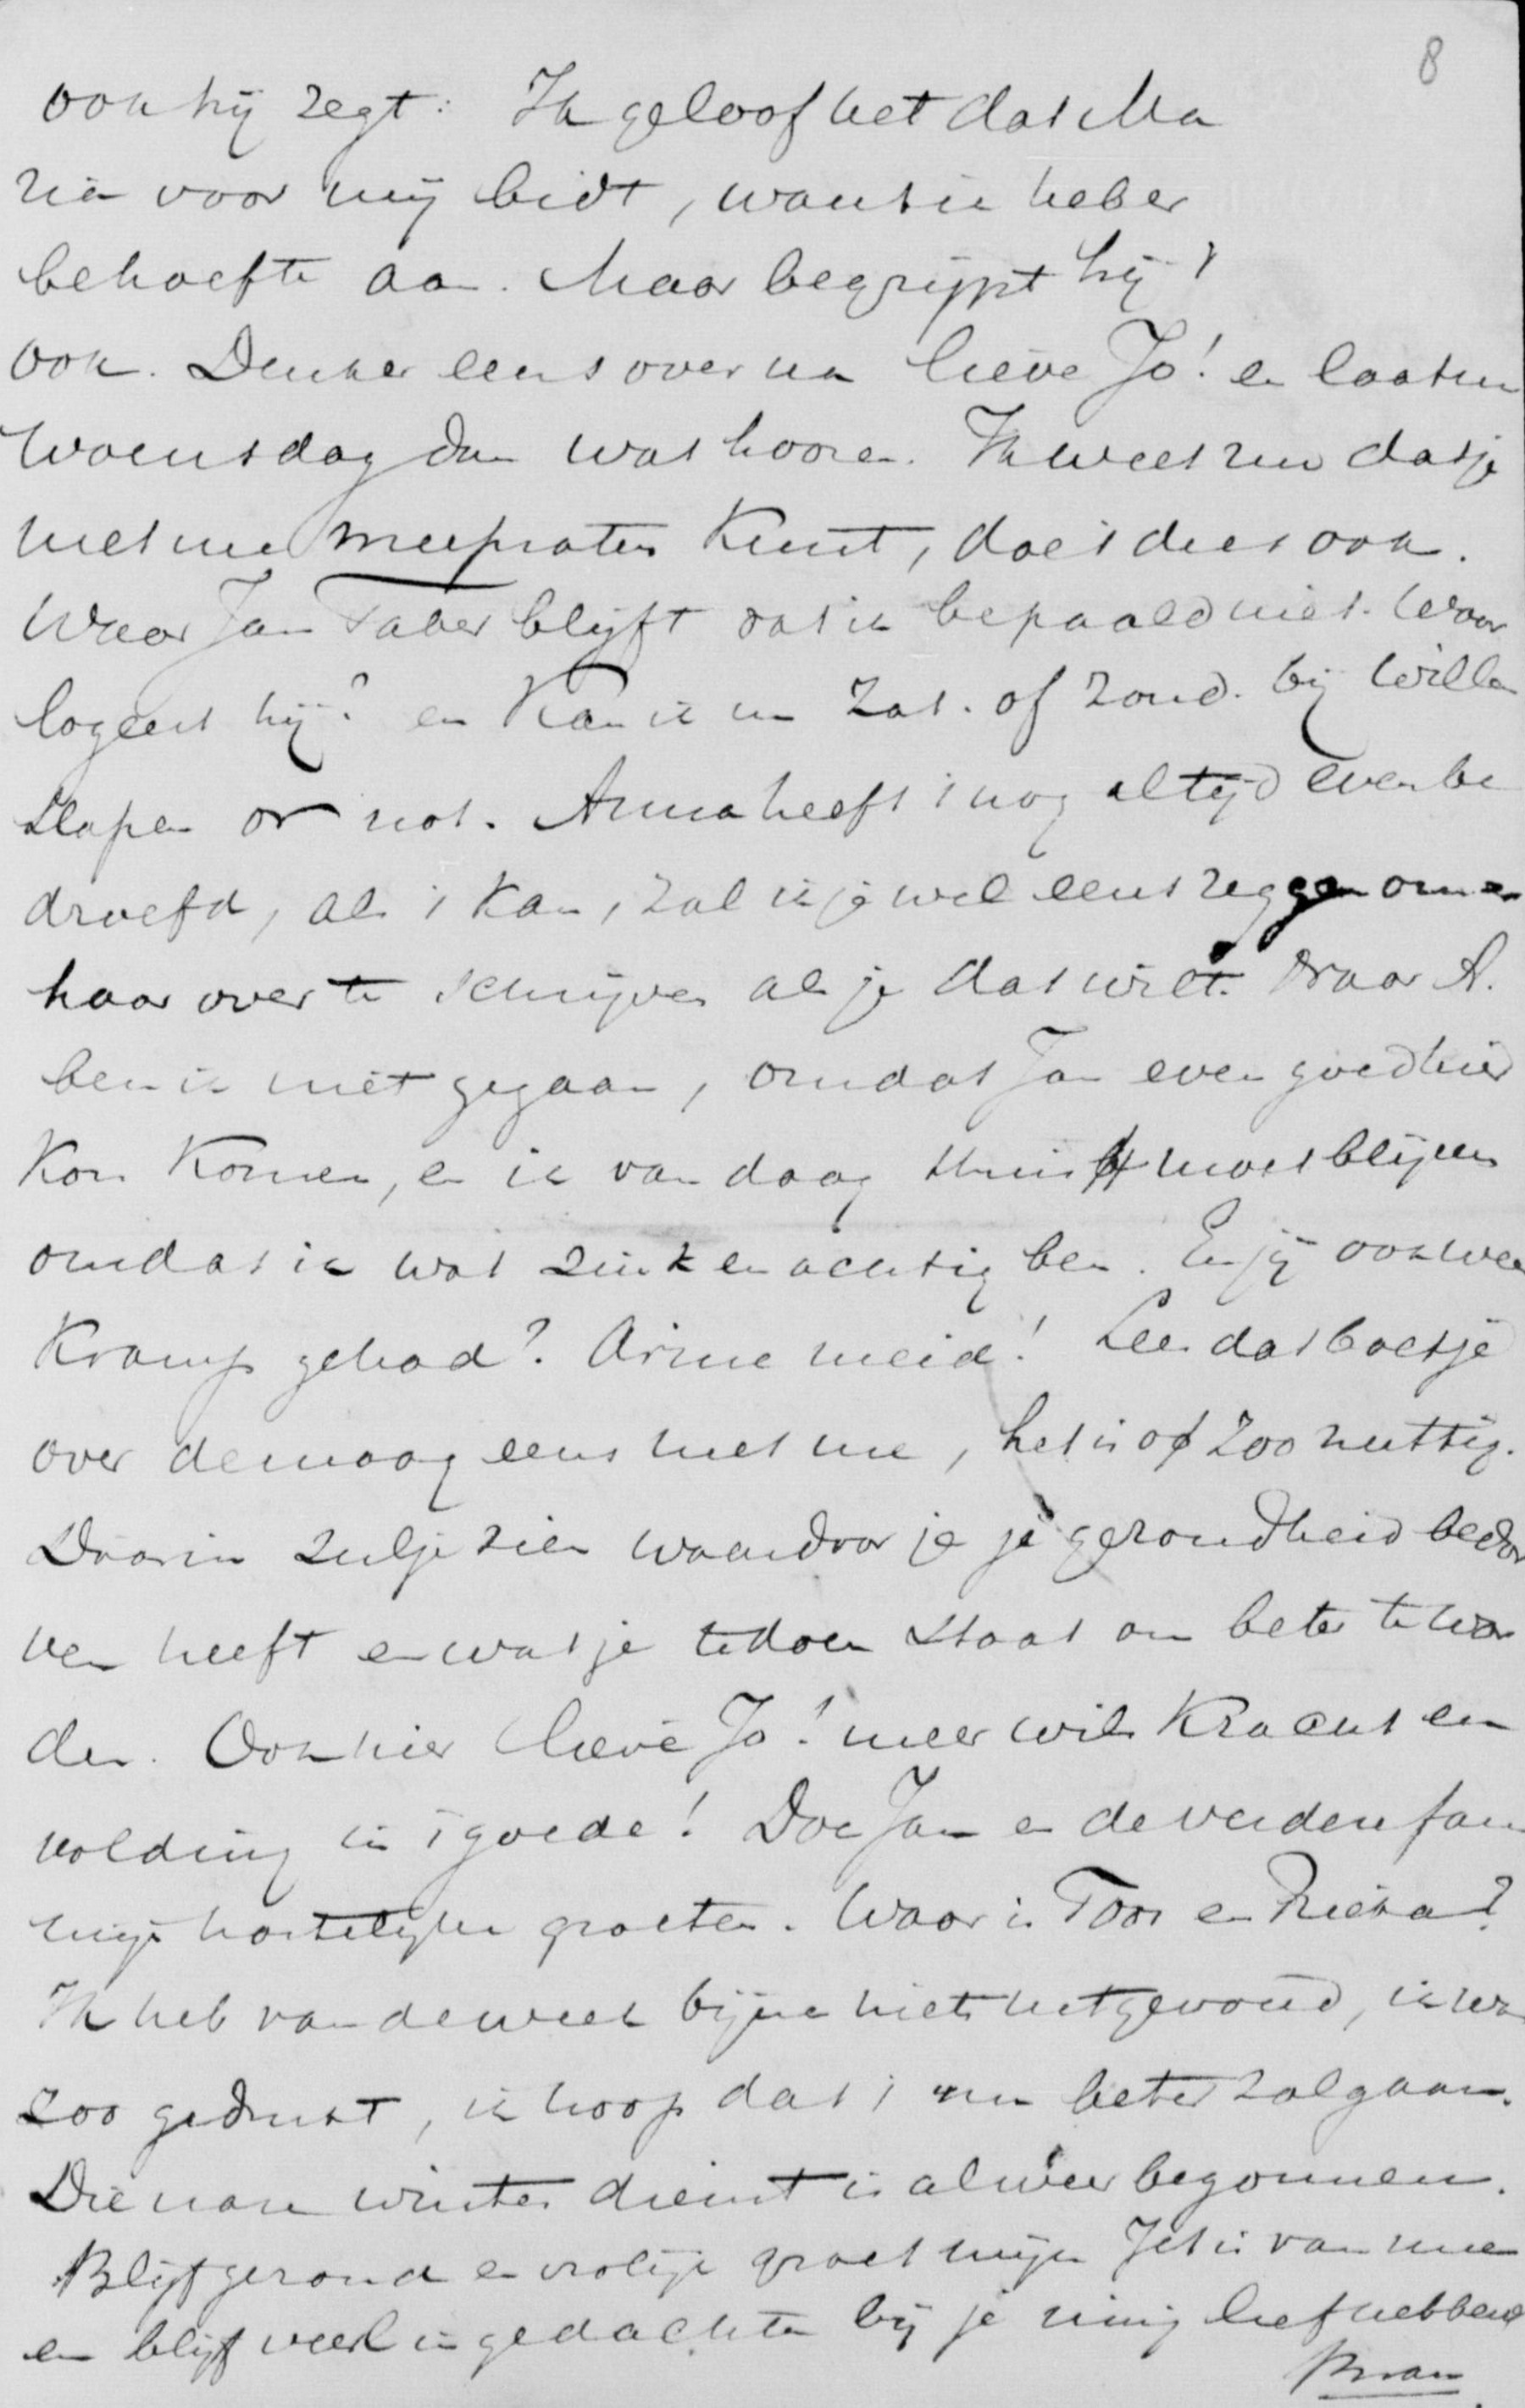 8
ook hij zegt: Ik geloof het dat Ma
ria voor mij bidt, want ik heb er
behoefte aan. Maar begrijpt hij 't
ook. Denk er eens over na lieve Jo! en laat me
Woensdag dan wat hooren. Ik weet nu dat je
met me meepraten kunt, doe 't dus ook.
Waar Jan Faber blijft vat ik bepaald niet. Waar
logeert hij? en kan ik nu Zat. of Zond. bij Willem
slapen or not. Anna heeft 't nog altijd even be
droefd, als 't kan, zal ik je wel eens zeggen om er
haar over te schrijven als je dat wilt. Naar A.
ben ik niet gegaan, omdat Jan even goed hier
kon komen, en ik van daag thuis moest blijven
omdat ik wat zinkenachtig ben. En jij ook weer
kramp gehad? Arme meid! Lees dat boekje
over de maag eens met me, het is zoo nuttig.
Daarin zul je zien waardoor je je gezondheid bedor
ven heeft en wat je te doen staat om beter te wor
den. Ook hier lieve Jo! meer wils kracht en
volding in 't goede! Doe Jan en de verdere fam
mijn hartelijke groeten. Waar is Toos en Rieka?
Ik heb van de week bijna niets uitgevoerd, ik was
zoo gedrukt, ik hoop dat 't nu beter zal gaan.
Die nare winter dienst is alweer begonnen.
Blijf gezond en vrolijk groet mijn Jetis van me
en blijf veel in gedachten bij je innig liefhebbend
Bram